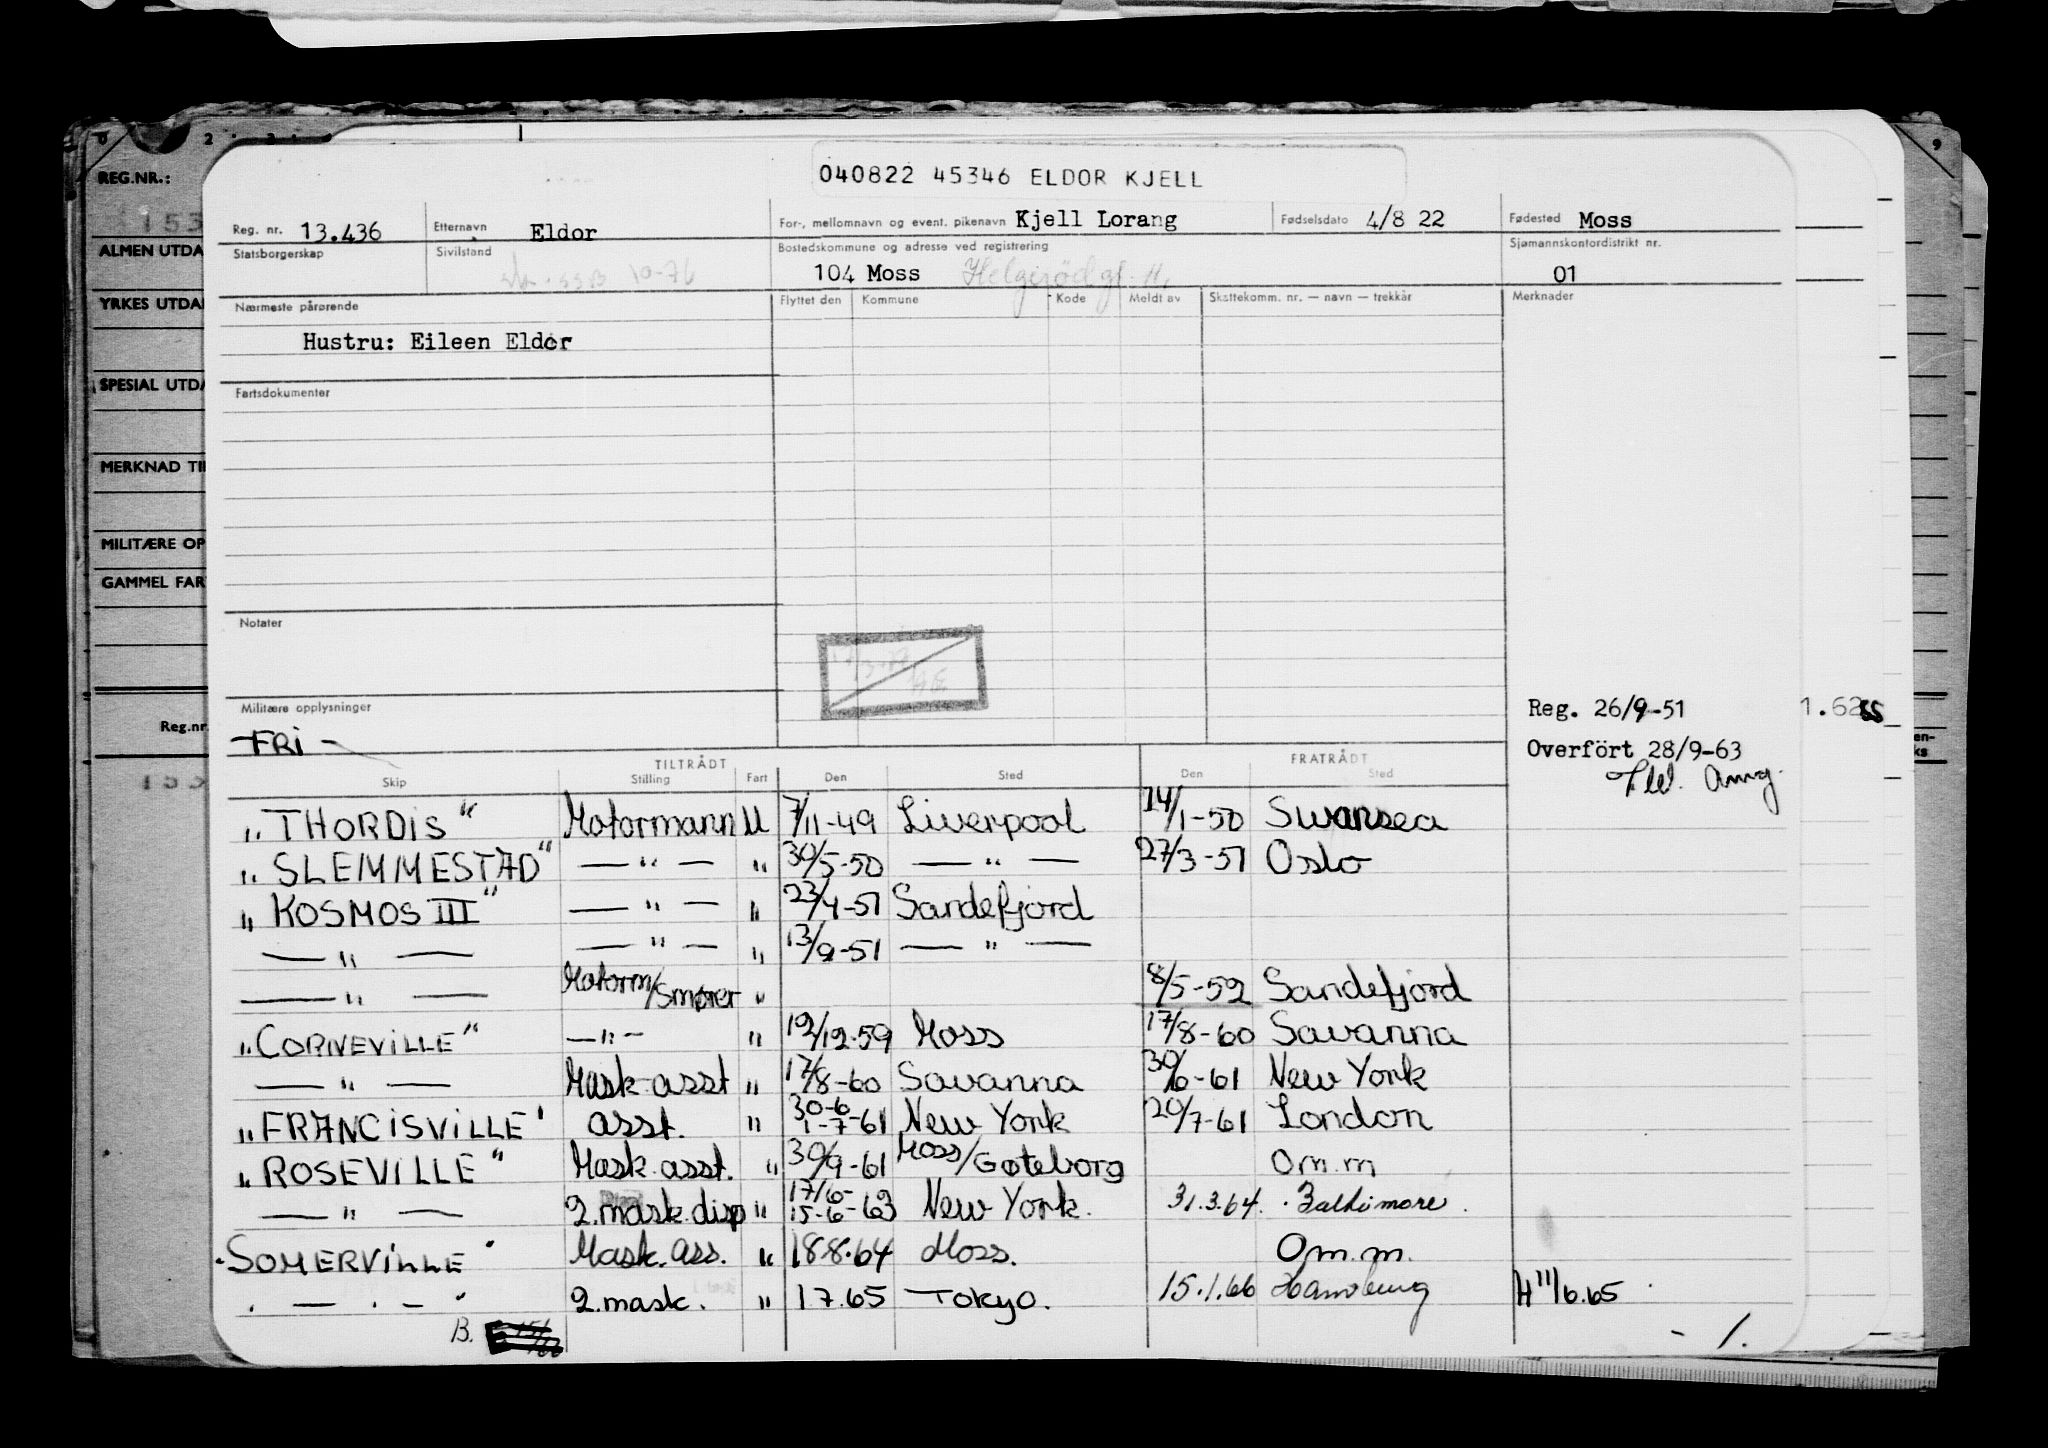 040822 45346 ELDOR KJELL
REG.NR.:
Reg. nr. 13.436 Etternavn Eldor For-, mellomnavn og event. pikenavn Kjell Lorang Fødselsdato 4/8 22 Fødested Moss
ALMEN UTDA
Statsborgerskap Sivilstand Bostedskommune og adresse ved registrering Sjømannskontordistrikt nr.
10-76 104 Moss 01
YRKES UTDA
Nærmeste pårørende Flyttet den Kommune Kode Meldt av Skattekomm. nr. — navn — trekkår Merknader
Hustru: Eileen Eldor
SPESIAL UTDA
Fartsdokumenter
MERKNAD TI
MILITÆRE OP
GAMMEL FAR
Notater
Militære opplysninger
Reg. 26/9-51
Reg.nr.
- FRI -
Overført 28/9-63
TILTRÅDT FRATRÅDT
Skip Stilling Fart Den Sted Den Sted
"THORDIS" Motormann U 7/11-49 Liverpool 14/1-50 Swansea
"SLEMMESTAD" — " — " 30/5-50 — " — 27/3-51 Oslo
"KOSMOS III" — " — " 23/4-51 Sandefjord
— " — — " — " 13/9-51 — " —
— " — Motorm/Smører " 8/5-52 Sandefjord
"CORNEVILLE" — " — " 19/12-59 Moss 17/8-60 Savanna
— " — Mask-asst " 17/8-60 Savanna 30/6-61 New York
"FRANCISVILLE" asst. " 30-6 1-7-61 New York 20/7-61 London
"ROSEVILLE" Mask.asst. " 30/9-61 Moss/Gøteborg Om.m
— " — 2.mask.disp " 17/6- 15-6-63 New York. 31.3.64. Baltimore.
"SOMERVILLE" Mask.ass. " 18.8.64 Moss. Om.m.
" — " — " 2.mask. " 1 7.65 Tokyo. 15.1.66 Hamburg H 11/6.65
B.
- 1.